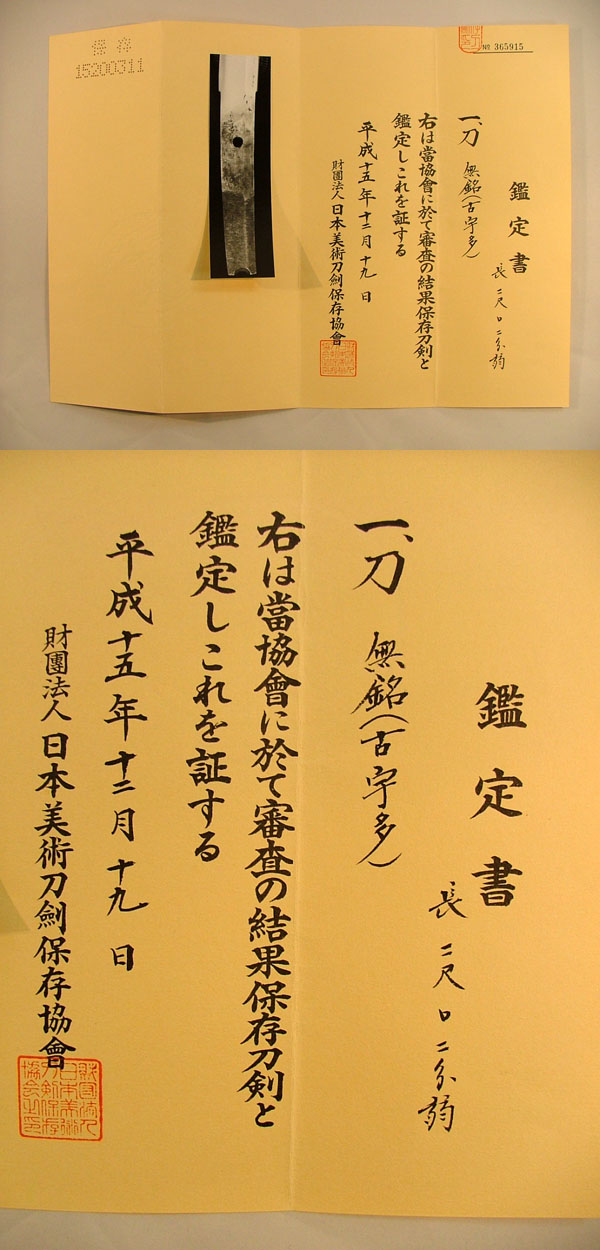 保存
15200311
№ 365915
鑑定書
一、刀 無銘(古宇多)
長 二尺口二分弱
右は當協會に於て審査の結果保存刀剣と
鑑定しこれを証する
平成十五年十二月十九日
財團法人日本美術刀劍保存協會
鑑定書
長 二尺口二分弱
一、刀 無銘(古宇多)
右は當協會に於て審査の結果保存刀剣と
鑑定しこれを証する
平成十五年十二月十九日
財團法人日本美術刀劍保存協會